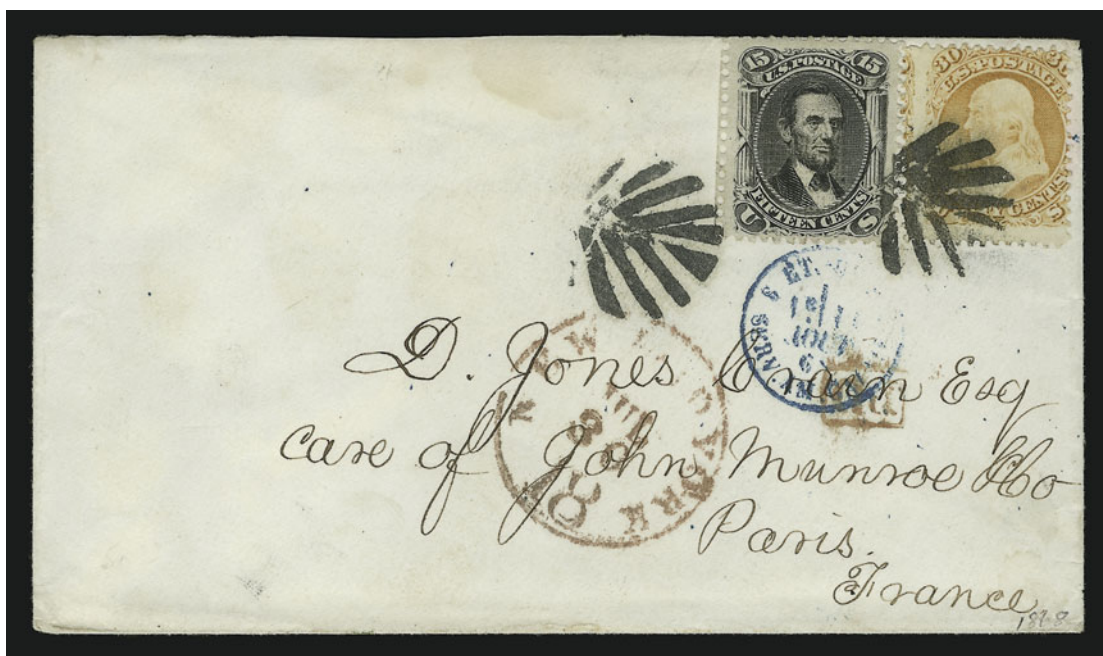 15 U.S. POSTAGE 15
FIFTEEN CENTS
U S
30 30
U.S. POSTAGE
CENTS
S
D. Jones Crain Esq
care of John Munroe & Co
Paris.
France
NEW YORK
8
1868